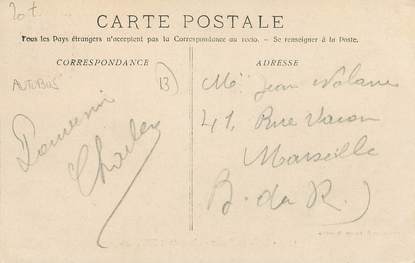 20+
CARTE POSTALE
Tous les Pays étrangers n'acceptent pas la Correspondance au recto. - Se renseigner à la Poste.
CORRESPONDANCE
ADRESSE
AUTOBUS
13
Souvenir
Charles
Mr Jean
41, Rue Vacon
Marseille
B. du R.)